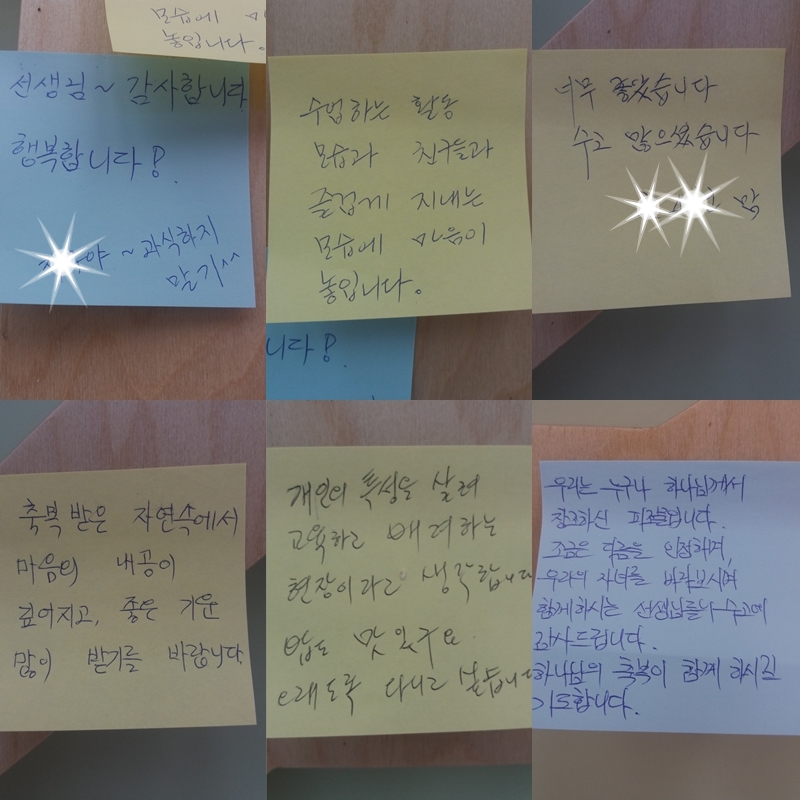 모습에 마
놓입니다.
선생님~ 감사합니다
행복합니다!
야~과식하지
말기^^
수업하는 활동
모습과 친구들과
즐겁게 지내는
모습에 마음이
놓입니다.
니다!
너무 좋았습니다
수고 많으셨습니다
맘
축복 받은 자연속에서
마음의 내공이
깊어지고, 좋은 기운
많이 받기를 바랍니다
개인의 특성을 살려
교육하고 배려하는
현장이라고 생각합니다
밥도 맛있구요
오래도록 다니고 싶습니다
우리는 누구나 하나님께서
창조하신 피조물입니다.
조금은 다름을 인정하며,
우리의 자녀를 바라보시며
함께하시는 선생님들의 수고에
감사드립니다.
하나님의 축복이 함께 하시길
기도합니다.